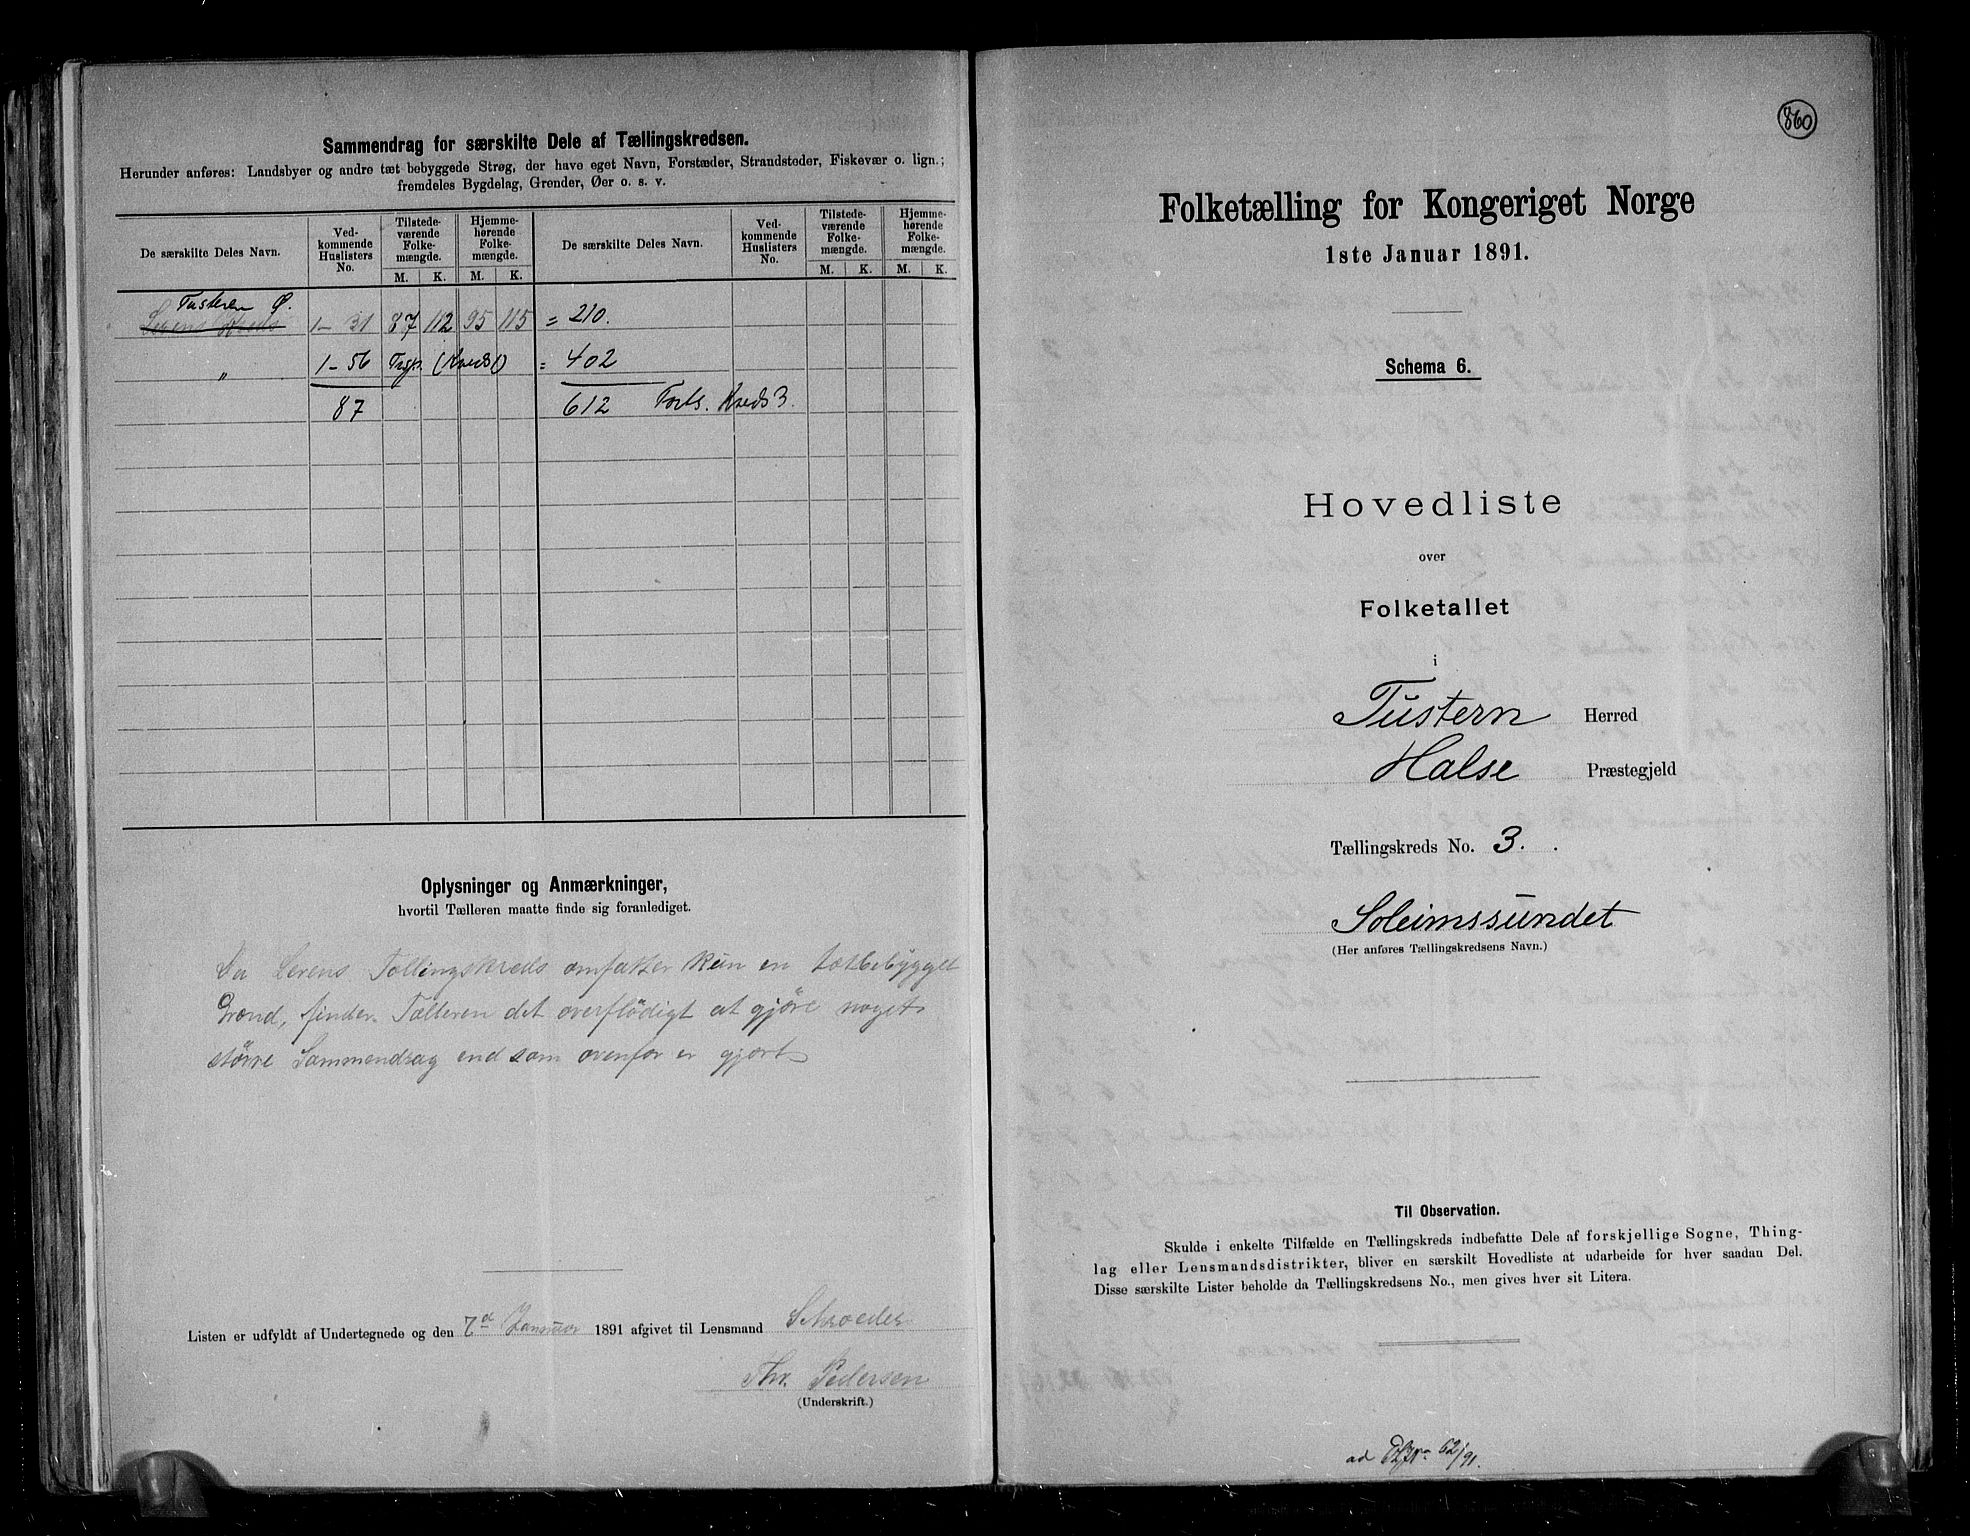 Sammendrag for særskilte Dele af Tællingskredsen.
Herunder anføres: Landsbyer og andre tæt bebyggede Strøg, der have eget Navn, Forstæder, Strandsteder, Fiskevær o. lign.;
fremdeles Bygdelag, Grender, Øer o. s. v.
De særskilte Deles Navn.
Ved-
kommende
Huslisters
No.
Tilstede-
værende
Folke-
mængde.
M. K.
Hjemme-
hørende
Folke-
mængde.
M. K.
De særskilte Deles Navn.
Ved-
kommende
Huslisters
No.
Tilstede-
værende
Folke-
mængde.
M. K.
Hjemme-
hørende
Folke-
mængde.
M. K.
Tusteren Ø.
Lerens Kreds 1 - 31 87 112 95 115 = 210.
„ 1 - 56 = 402
87 612 Forts. Kreds 3.
Oplysninger og Anmærkninger,
hvortil Tælleren maatte finde sig foranlediget.
Da Lerens Tællingskreds omfatter kun en tætbebygget
Grænd, finder Tælleren det overflödigt at gjöre noget
större Sammendrag end som ovenfor er gjort
Listen er udfyldt af Undertegnede og den 7de Januar 1891 afgivet til Lensmand Schroeder
Thr. Pedersen
(Underskrift.)
860
Folketælling for Kongeriget Norge
1ste Januar 1891.
Schema 6.
Hovedliste
over
Folketallet
i
Tustern Herred
Halse Præstegjeld
Tællingskreds No. 3.
Soleimssundet
(Her anføres Tællingskredsens Navn.)
Til Observation.
Skulde i enkelte Tilfælde en Tællingskreds indbefatte Dele af forskjellige Sogne, Thing-
lag eller Lensmandsdistrikter, bliver en særskilt Hovedliste at udarbeide for hver saadan Del.
Disse særskilte Lister beholde da Tællingskredsens No., men gives hver sit Litera.
ad 62/91.